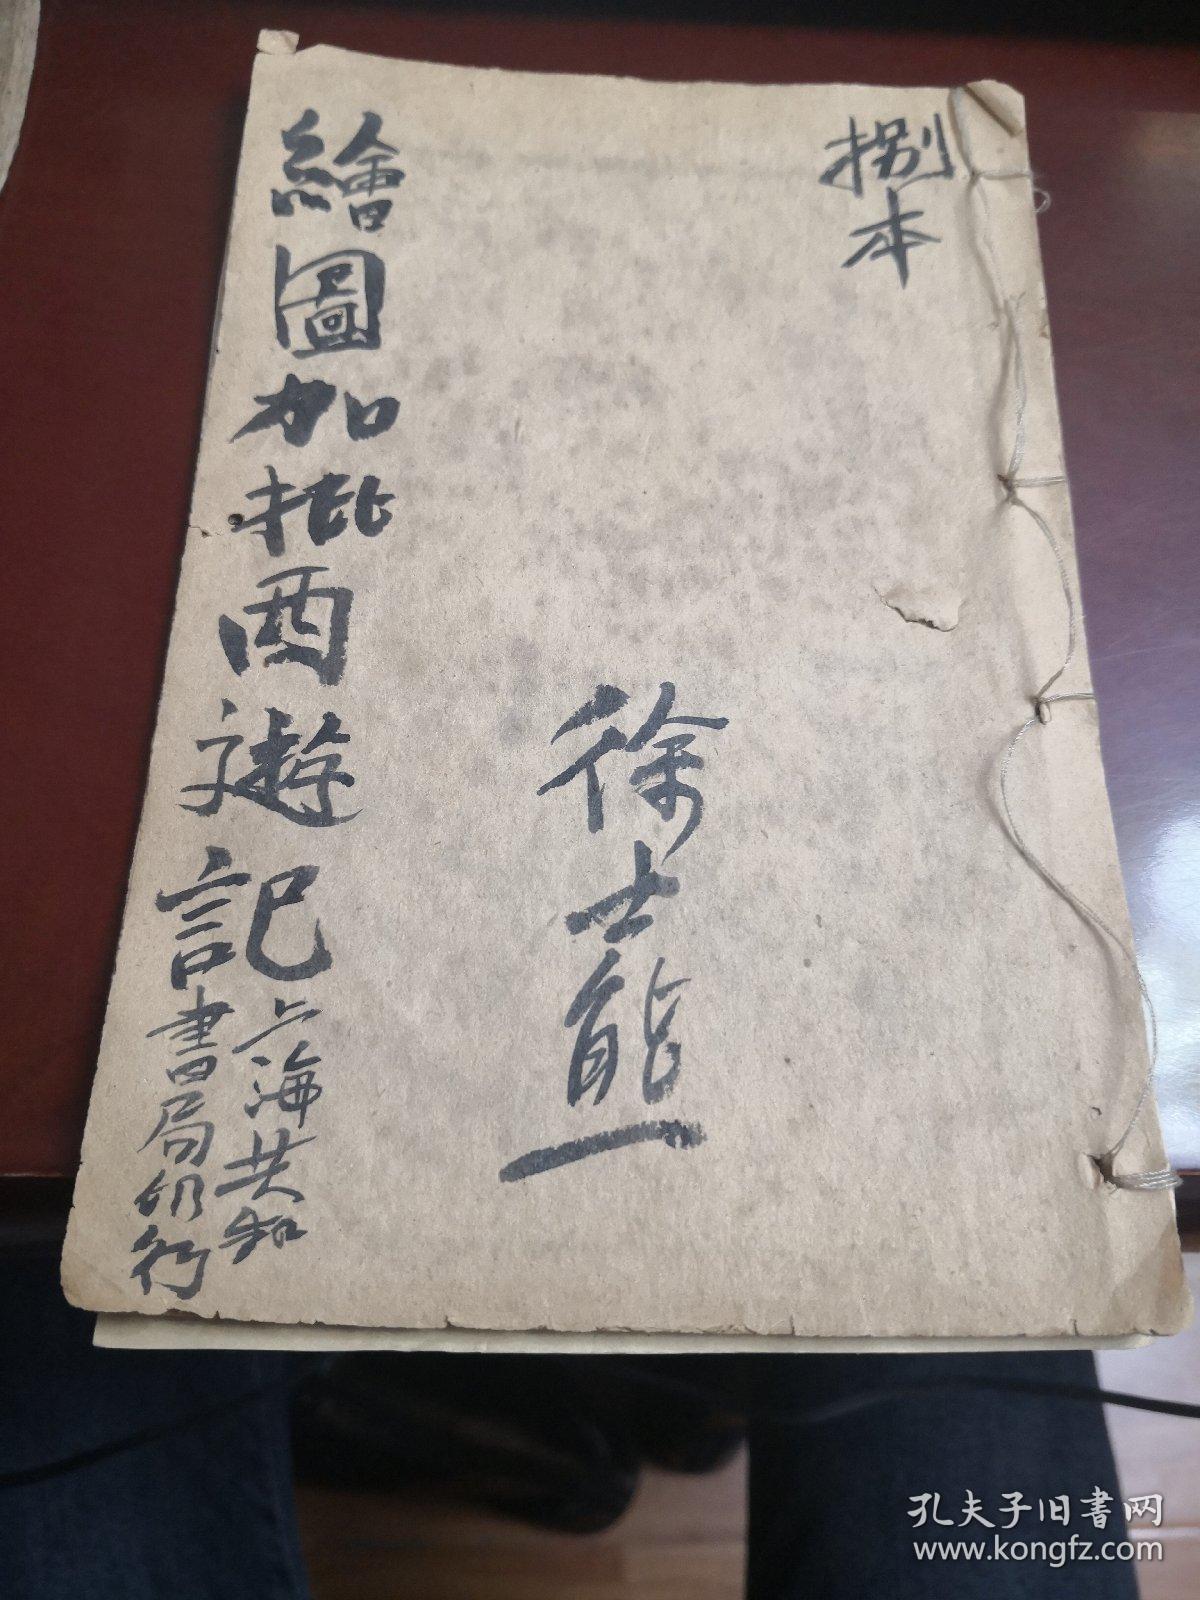 捌本
徐士能
繪圖加批西遊記
上海共和
書局仿行
孔夫子旧书网
www.kongfz.com